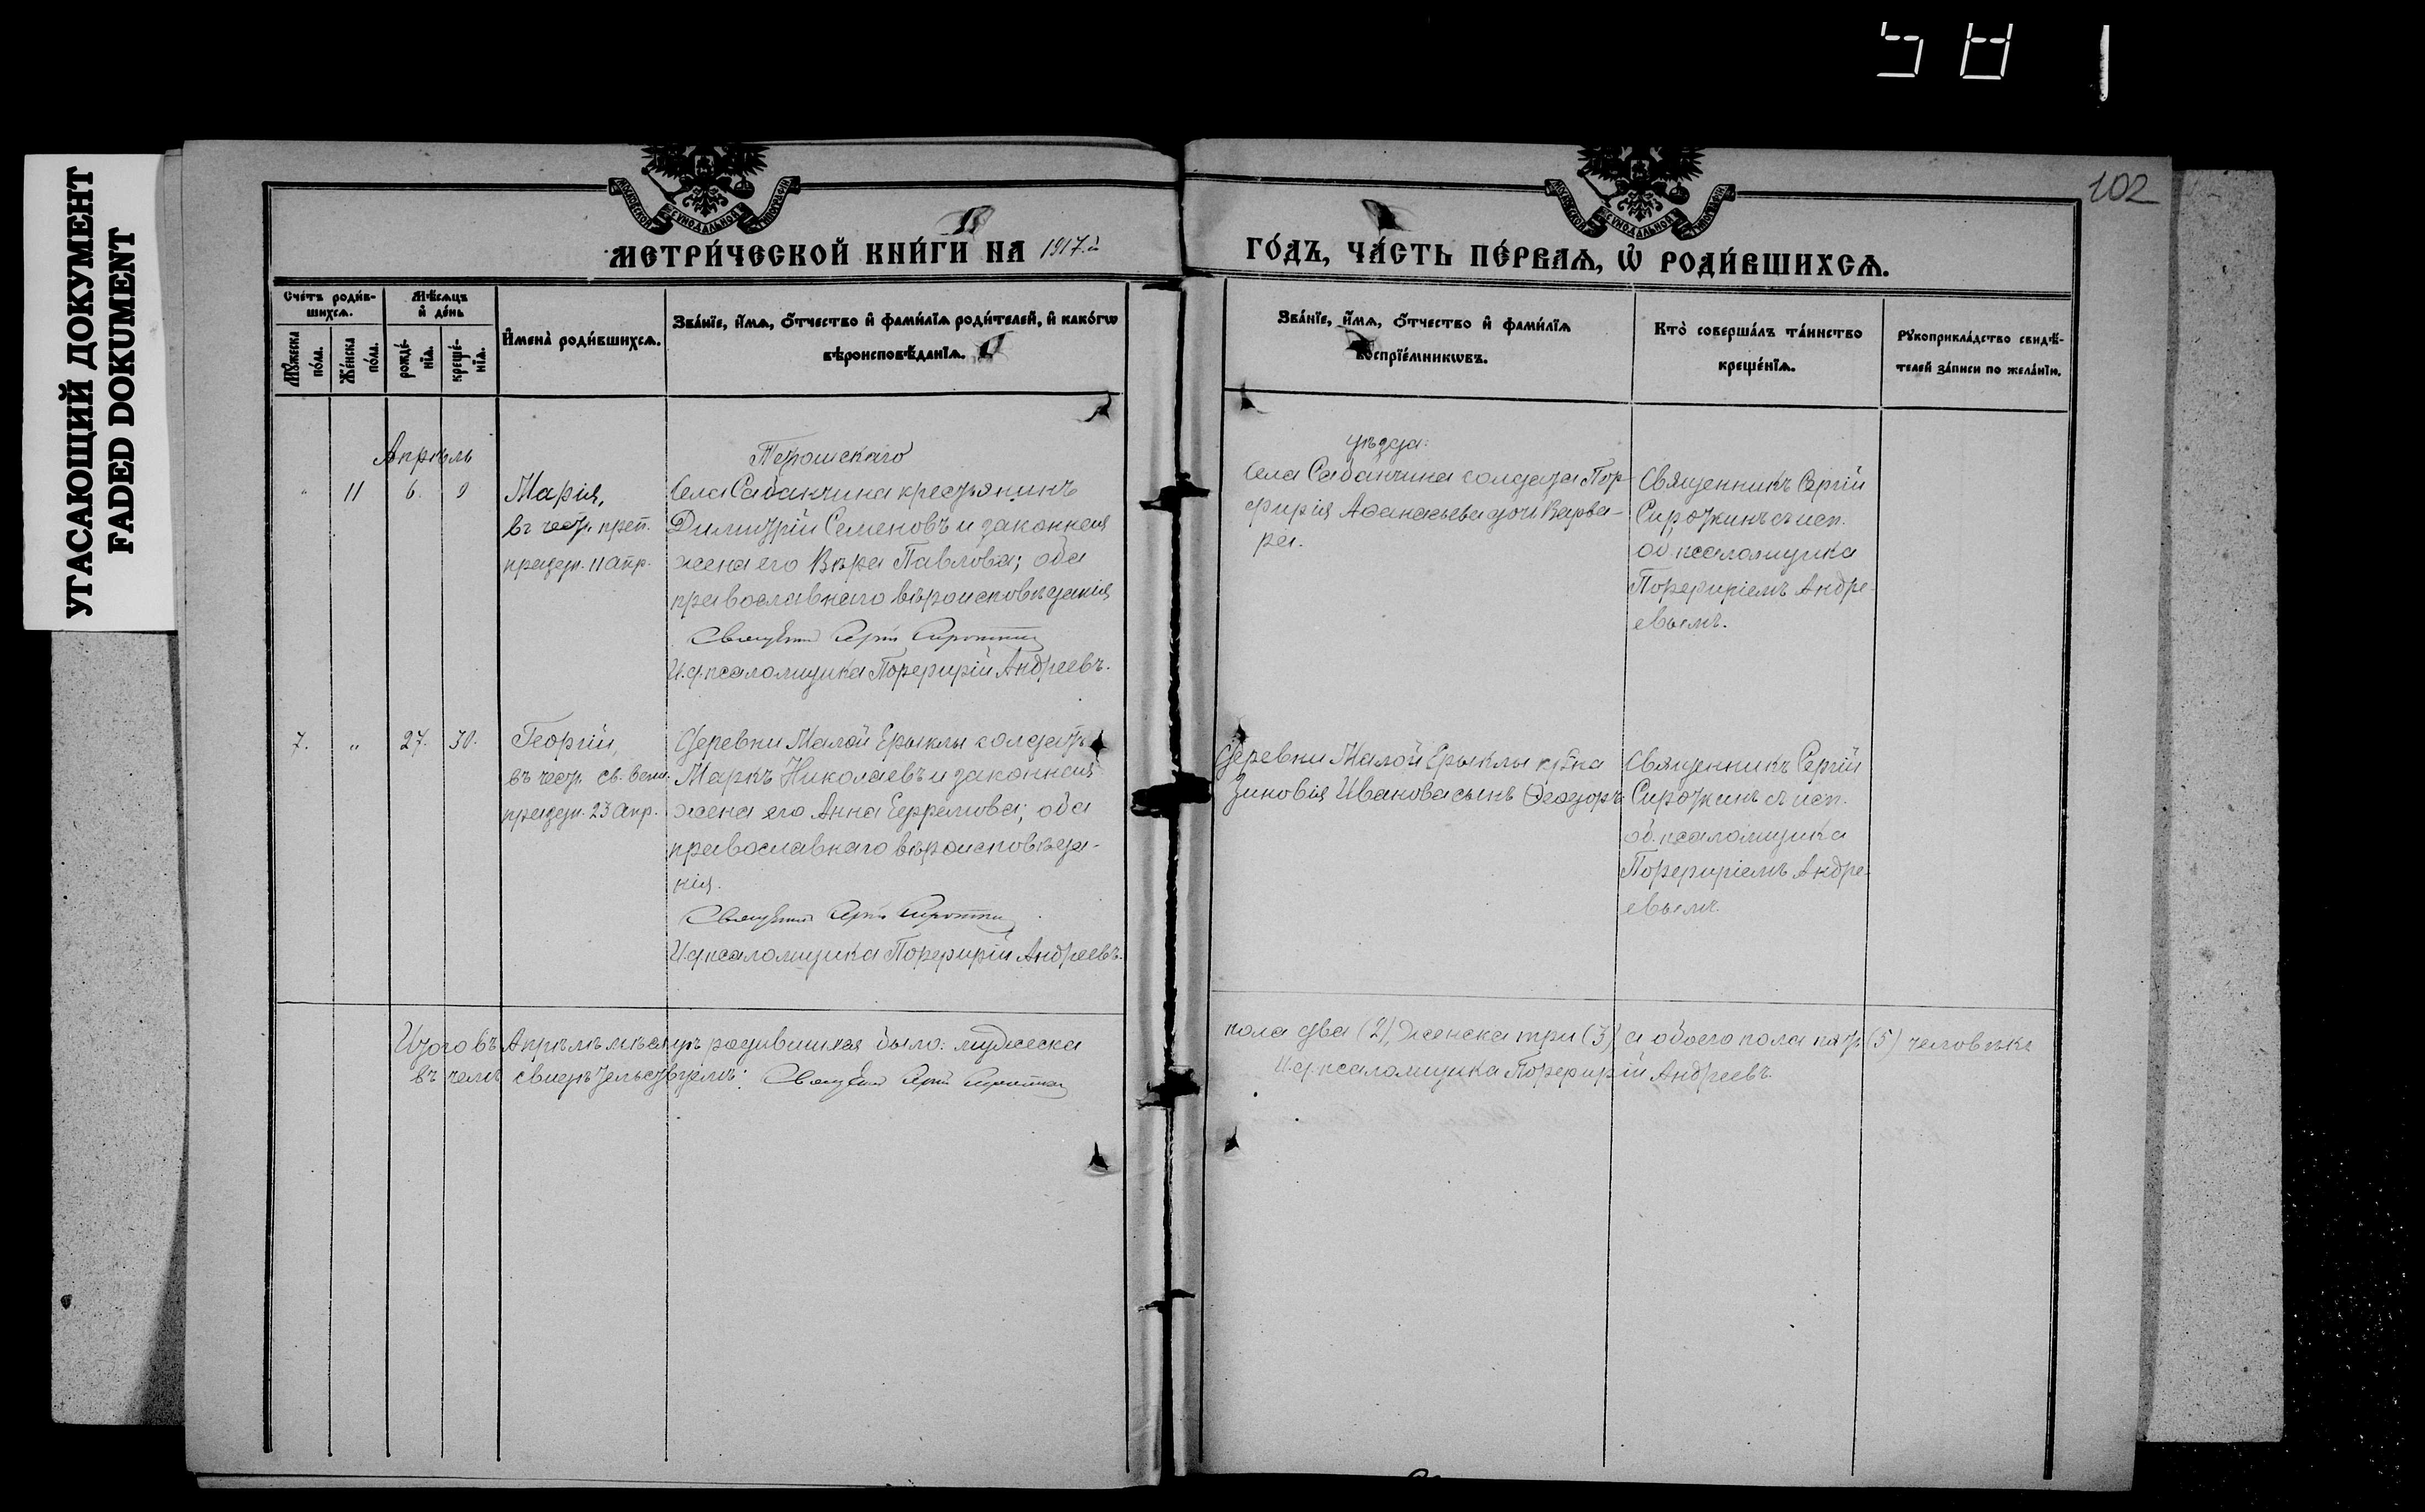 581
УГАСАЮЩИЙ ДОКУМЕНТ
FADED DOKUMENT
102
МОСКОВСКОЙ СѴНОДАЛЬНОЙ ТИПОГРАФІИ
МОСКОВСКОЙ СѴНОДАЛЬНОЙ ТИПОГРАФІИ
МЕТРИ́ЧЕСКОЙ КНИ́ГИ НА 1917.й ГО́ДЪ, ЧА́СТЬ ПЕ́РВАѦ, Ѽ РОДИ́ВШИХСѦ.
Сче́тъ роди́в-
шихсѧ.
Мꙋ́жеска
по́ла.
Же́нска
по́ла.
Мѣ́сѧцъ
и҆ де́нь
рожде́-
нїѧ.
креще́-
нїѧ.
И҆мена̀ роди́вшихсѧ.
Зва́нїе, и҆́мѧ, ѻ҆́тчество и҆ фами́лїѧ роди́телей, и҆ како́гѡ
вѣроисповѣ́данїѧ.
Зва́нїе, и҆́мѧ, ѻ҆́тчество и҆ фами́лїѧ
воспрїе́мникѡвъ.
Кто̀ соверша́лъ та́инство
креще́нїѧ.
Рꙋкоприкла́дство свидѣ́-
телей за́писи по жела́нїю.
Апрѣль
уѣзда:
" 11 6. 9
Марія,
въ честь преп.
праздн. 11 апр.
Села Сабанчина крестьянинъ
Димитрій Семеновъ и законная
жена его Вѣра Павлова; оба
православнаго вѣроисповѣданія
Священникъ Сергій Сироткин
И.д. псаломщика Порфирій Андреевъ.
Села Сабанчина солдата Пор-
фирія Аѳанасьева дочь Варва-
ра.
Священникъ Сергій
Сироткинъ съ исп.
об. псаломщика
Порфиріемъ Андре-
евымъ.
7. " 27. 30.
Георгій,
въ честь св. вели.
праздн. 23 апр.
Деревни Малой Ерыклы солдатъ
Маркъ Николаевъ и законная
жена его Анна Ефремова; оба
православнаго вѣроисповѣда-
нія.
Священникъ Сергій Сироткин
И.д. псаломщика Порфирій Андреевъ.
Деревни Малой Ерыклы кр-на
Зиновія Иванова сынъ Ѳеодоръ
Священникъ Сергій
Сироткинъ съ исп.
об. псаломщика
Порфиріемъ Андре-
евымъ.
Итого въ Апрѣлѣ мѣсяцѣ родившихся было: мужеска пола два (2), женска три (3) а обоего пола пять (5) человѣкъ
въ чемъ свидѣтельствуемъ: Священникъ Сергій Сироткин И.д. псаломщика Порфирій Андреевъ.